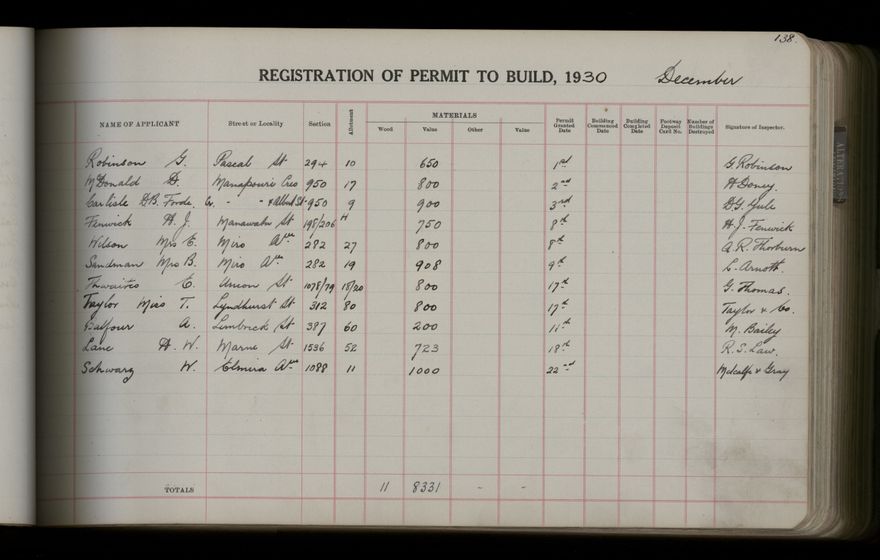 138.
REGISTRATION OF PERMIT TO BUILD, 1930 December
NAME OF APPLICANT Street or Locality Section Allotment MATERIALS Wood Value Other Value Permit Granted Date Building Commenced Date Building Completed Date Footway Deposit Card No. Number of Buildings Destroyed Signature of Inspector.
Robinson G. Pascal St 294 10 650 1st G Robinson
McDonald D. Manapouri Cres 950 17 800 2nd H Doney.
Carlisle & B. Forde. Cr. " " & Albert St. 950 9 900 3rd D.G. Yule
Fenwick H. J. Manawatu St 198/206 H 750 8th H. J. Fenwick
Wilson Mrs E. Miro Ave 282 27 800 8th A. R. Thorburn
Sandman Mrs B. Miro Ave 282 19 908 9th L. Arnott.
Thwaites E. Union St 1078/79 18/20 800 17th G. Thomas.
Taylor Miss T. Lyndhurst St 312 80 800 17th Taylor & Co.
Balfour A. Limbrick St 387 60 200 M. Bailey
Lane H. W. Marne St 1536 52 723 18th R. S. Law.
Schwarz W. Elmira Ave 1088 11 1000 22nd Metcalfe & Gray
TOTALS 11 8331 - -